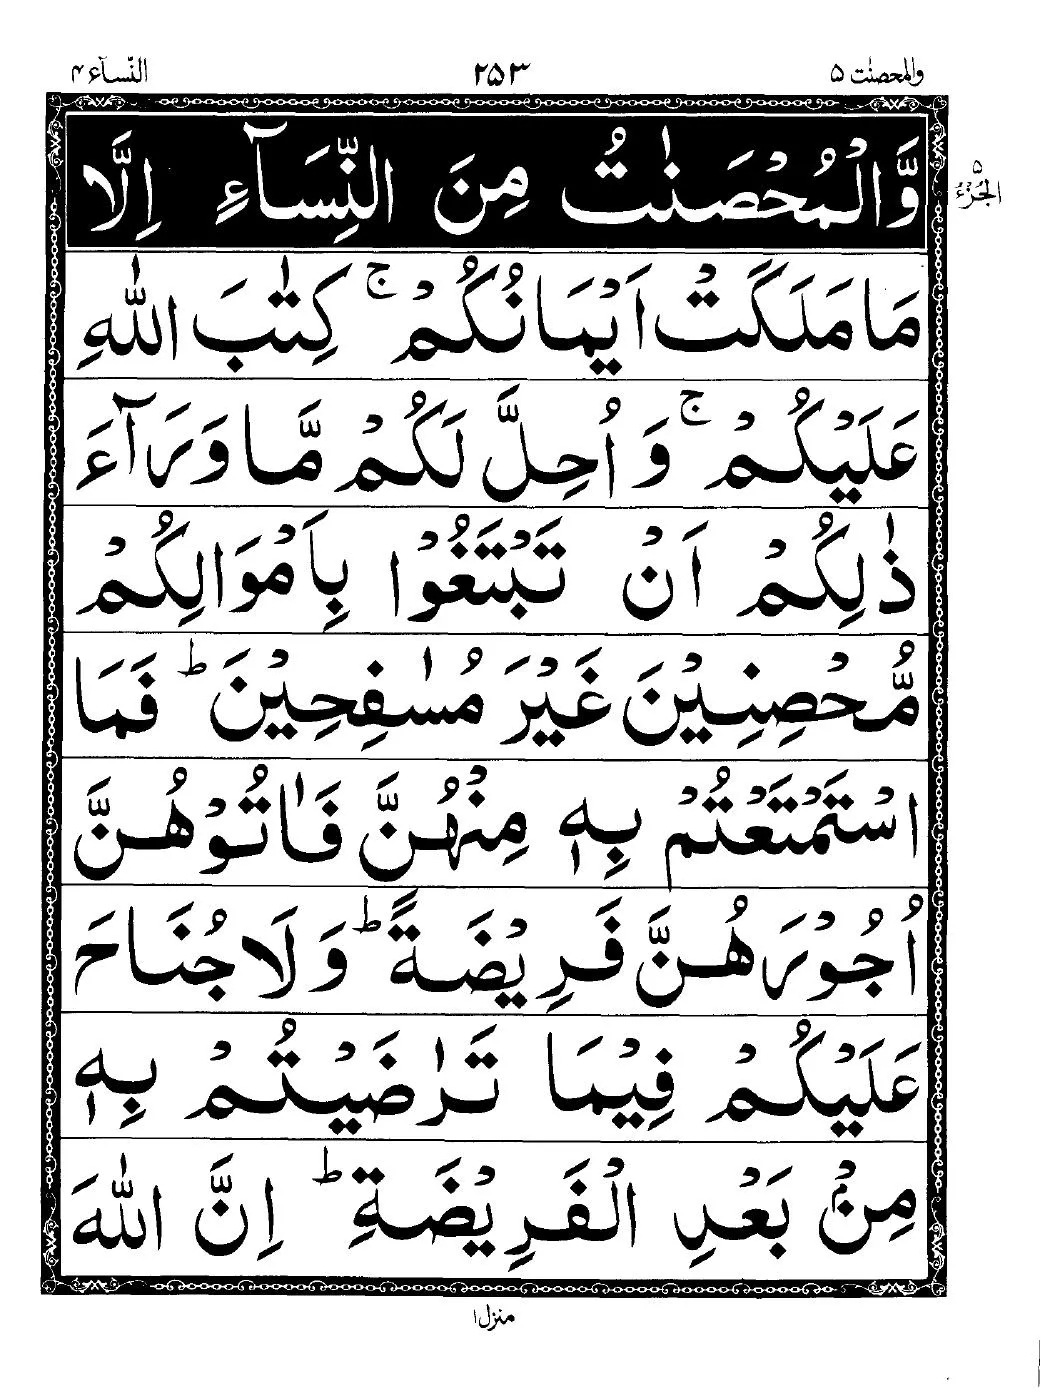 والمحصنٰت ۵ ۲۵۳ النّسآء ۴
وَّالْمُحْصَنٰتُ مِنَ النِّسَآءِ اِلَّا
۵
الجُزْءُ
مَا مَلَكَتْ اَيْمَانُكُمْ ۚ كِتٰبَ اللّٰهِ
عَلَيْكُمْ ۚ وَاُحِلَّ لَكُمْ مَّا وَرَآءَ
ذٰلِكُمْ اَنْ تَبْتَغُوْا بِاَمْوَالِكُمْ
مُّحْصِنِيْنَ غَيْرَ مُسٰفِحِيْنَ ؕ فَمَا
اسْتَمْتَعْتُمْ بِهٖ مِنْهُنَّ فَاٰتُوْهُنَّ
اُجُوْرَهُنَّ فَرِيْضَةً ؕ وَلَا جُنَاحَ
عَلَيْكُمْ فِيْمَا تَرٰضَيْتُمْ بِهٖ
مِنْۢ بَعْدِ الْفَرِيْضَةِ ؕ اِنَّ اللّٰهَ
منزل ۱